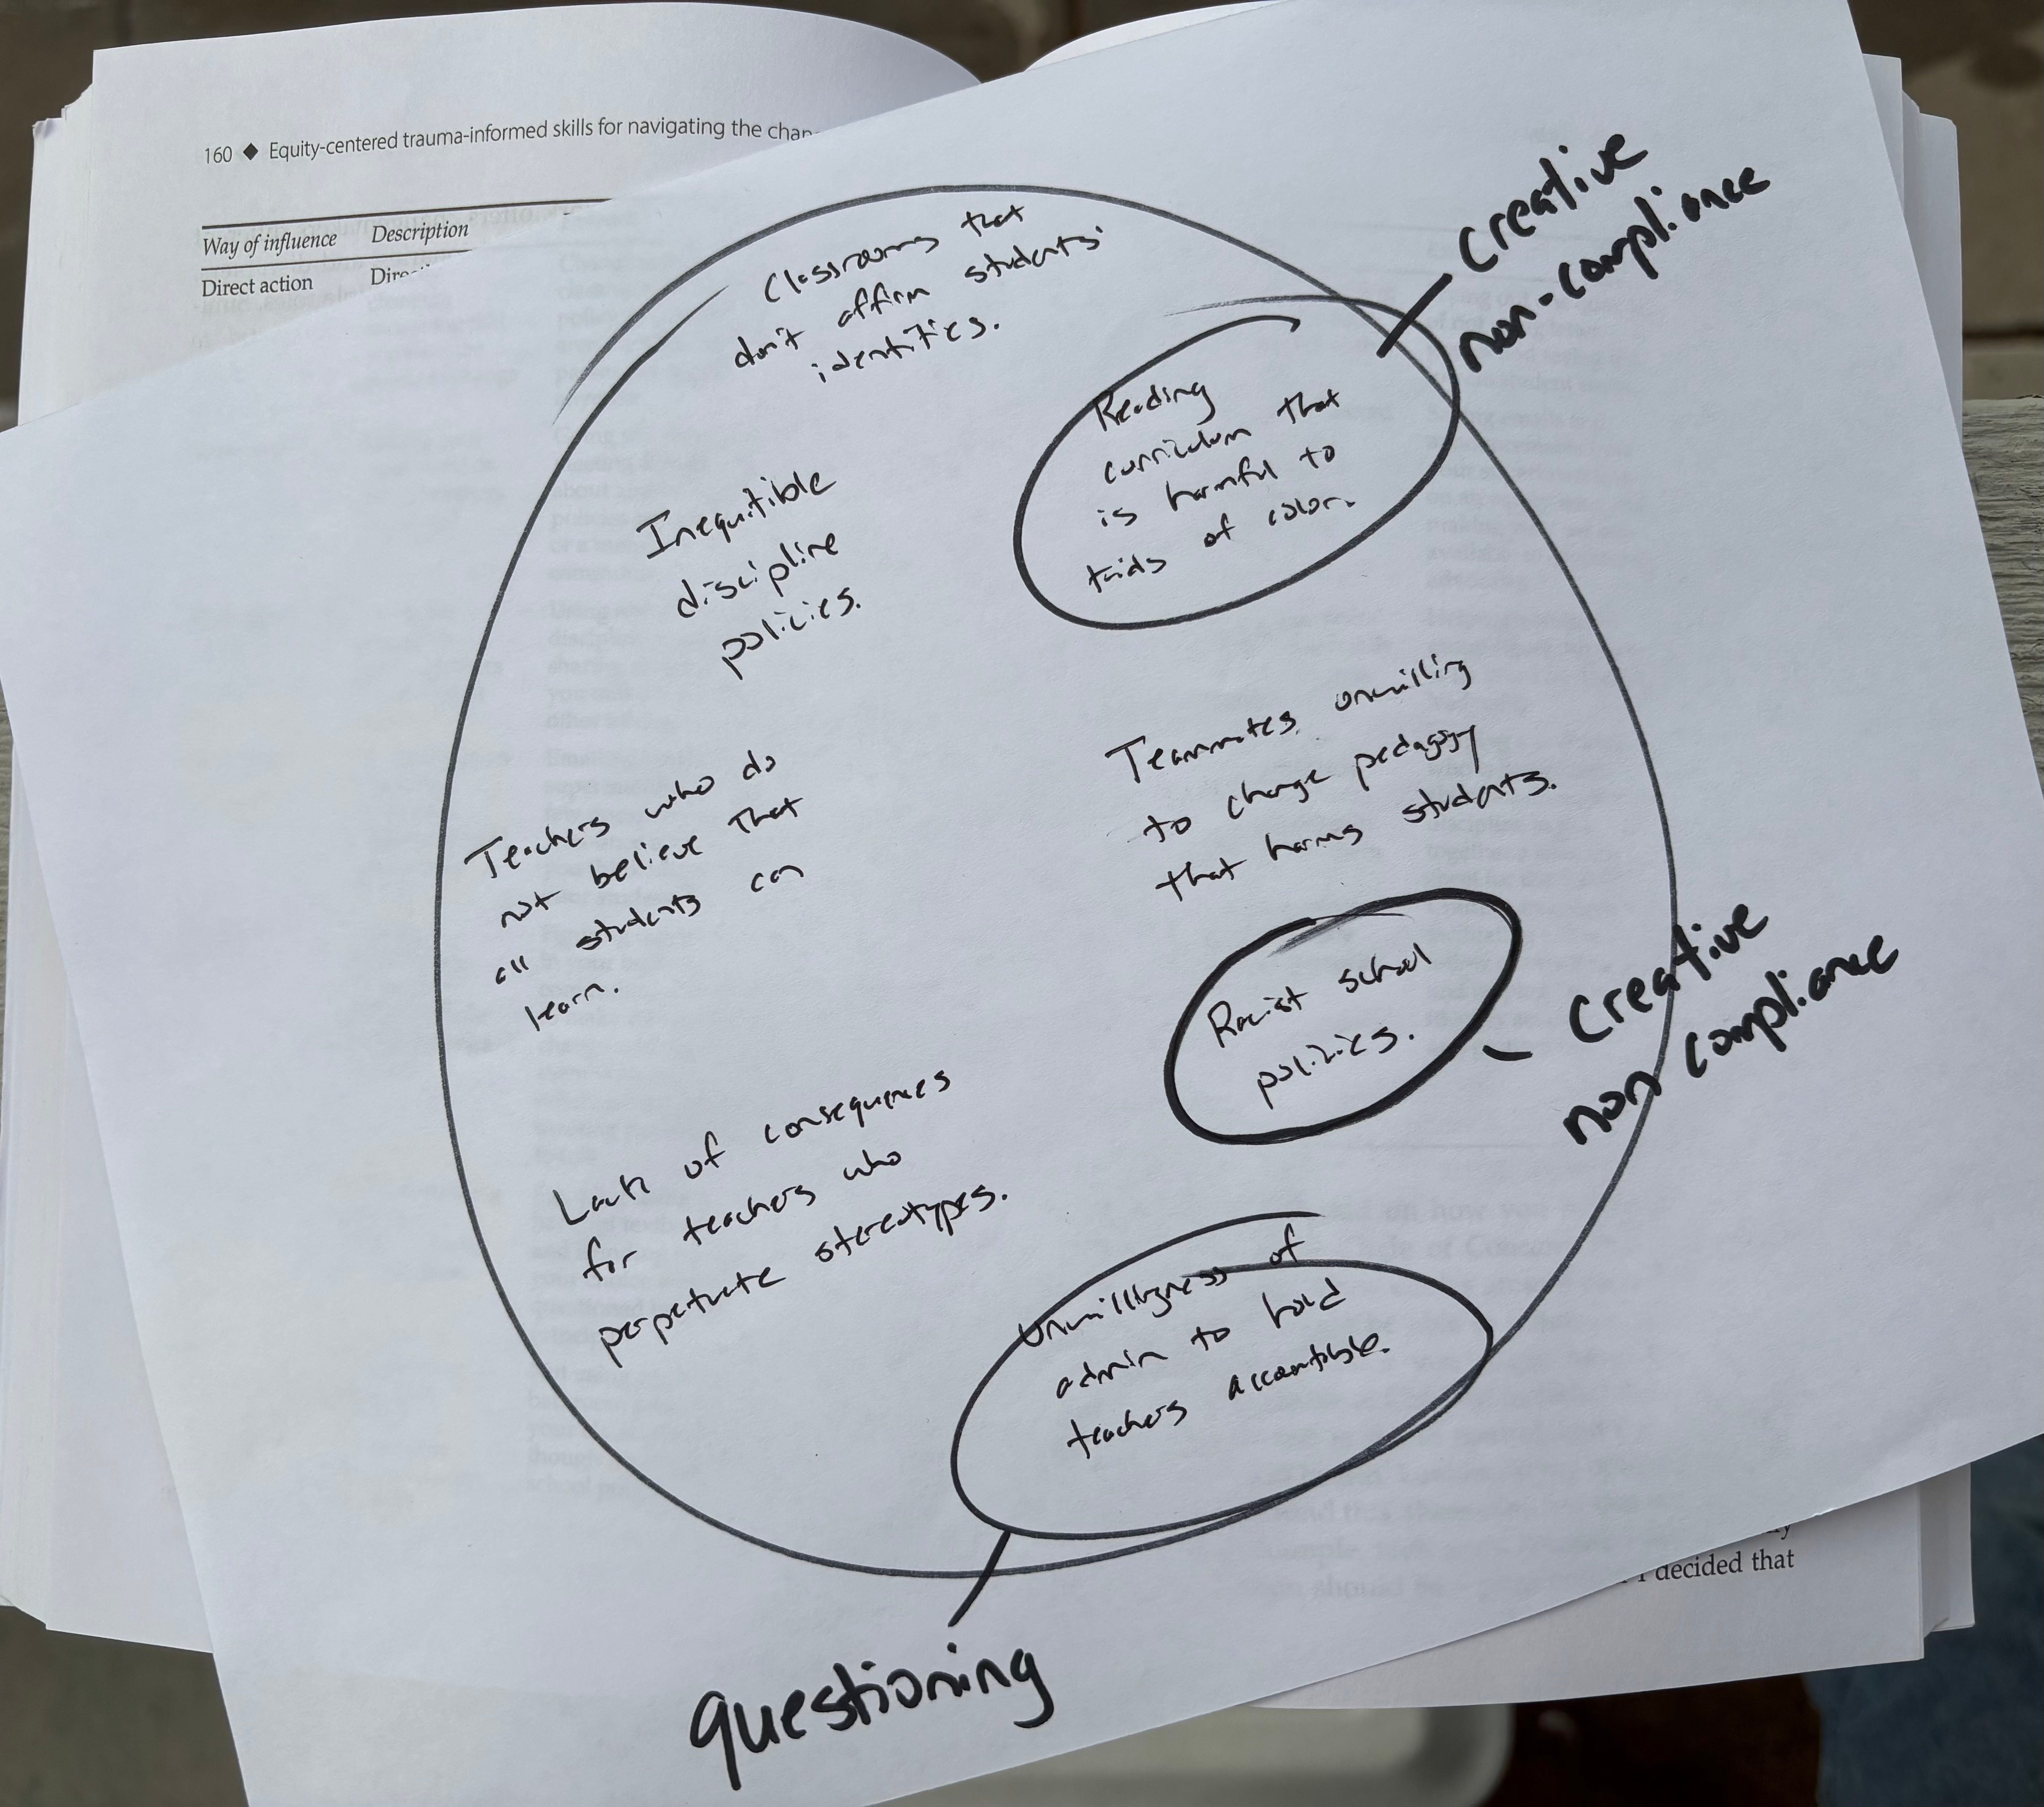 160 ◆ Equity-centered trauma-informed skills for navigating the chan
Way of influence Description
Direct action Dire
Classrooms that
don't affirm students'
identities.
Creative
non-compliance
Reading
curriculum that
is harmful to
kids of color.
Inequitible
discipline
policies.
Teammates unwilling
to change pedagogy
that harms students.
Teachers who do
not believe that
all students can
learn.
Racist school
policies.
Creative
non compliance
Lack of consequences
for teachers who
perpetuate stereotypes.
Unwillingness of
admin to hold
teachers accountible.
questioning
I decided that